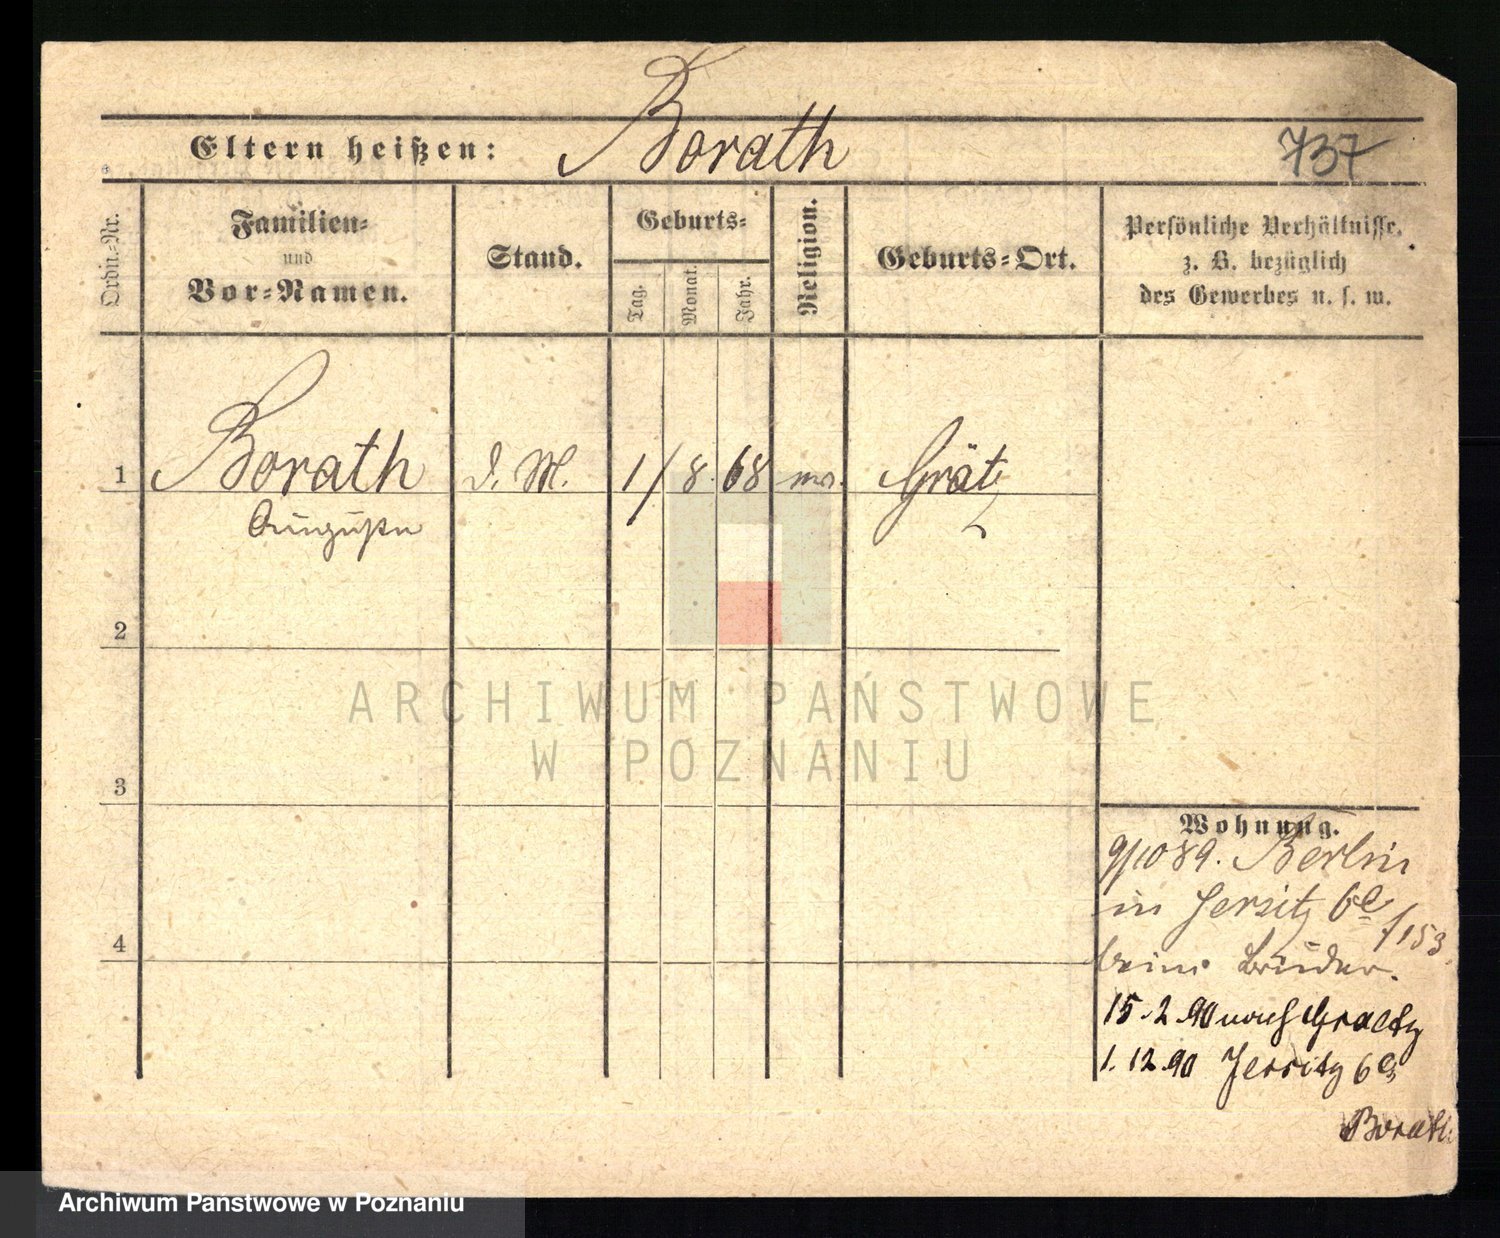 Eltern heißen: Borath
737
Ordn.-Nr.
Familien-
und
Vor-Namen.
Stand.
Geburts-
Tag.
Monat.
Jahr.
Religion.
Geburts-Ort.
Persönliche Verhältnisse,
z. B. bezüglich
des Gewerbes u. s. w.
1 Borath d. M. 1/ 8. 68 Grätz
2
3
4
ARCHIWUM PAŃSTWOWE
W POZNANIU
Wohnung.
9/10 89. Berlin
in Jersitz 6e
f 153
beim Bruder.
15.2.90 nach Graetz
1.12.90 Jersitz 6e
Borath
Archiwum Państwowe w Poznaniu